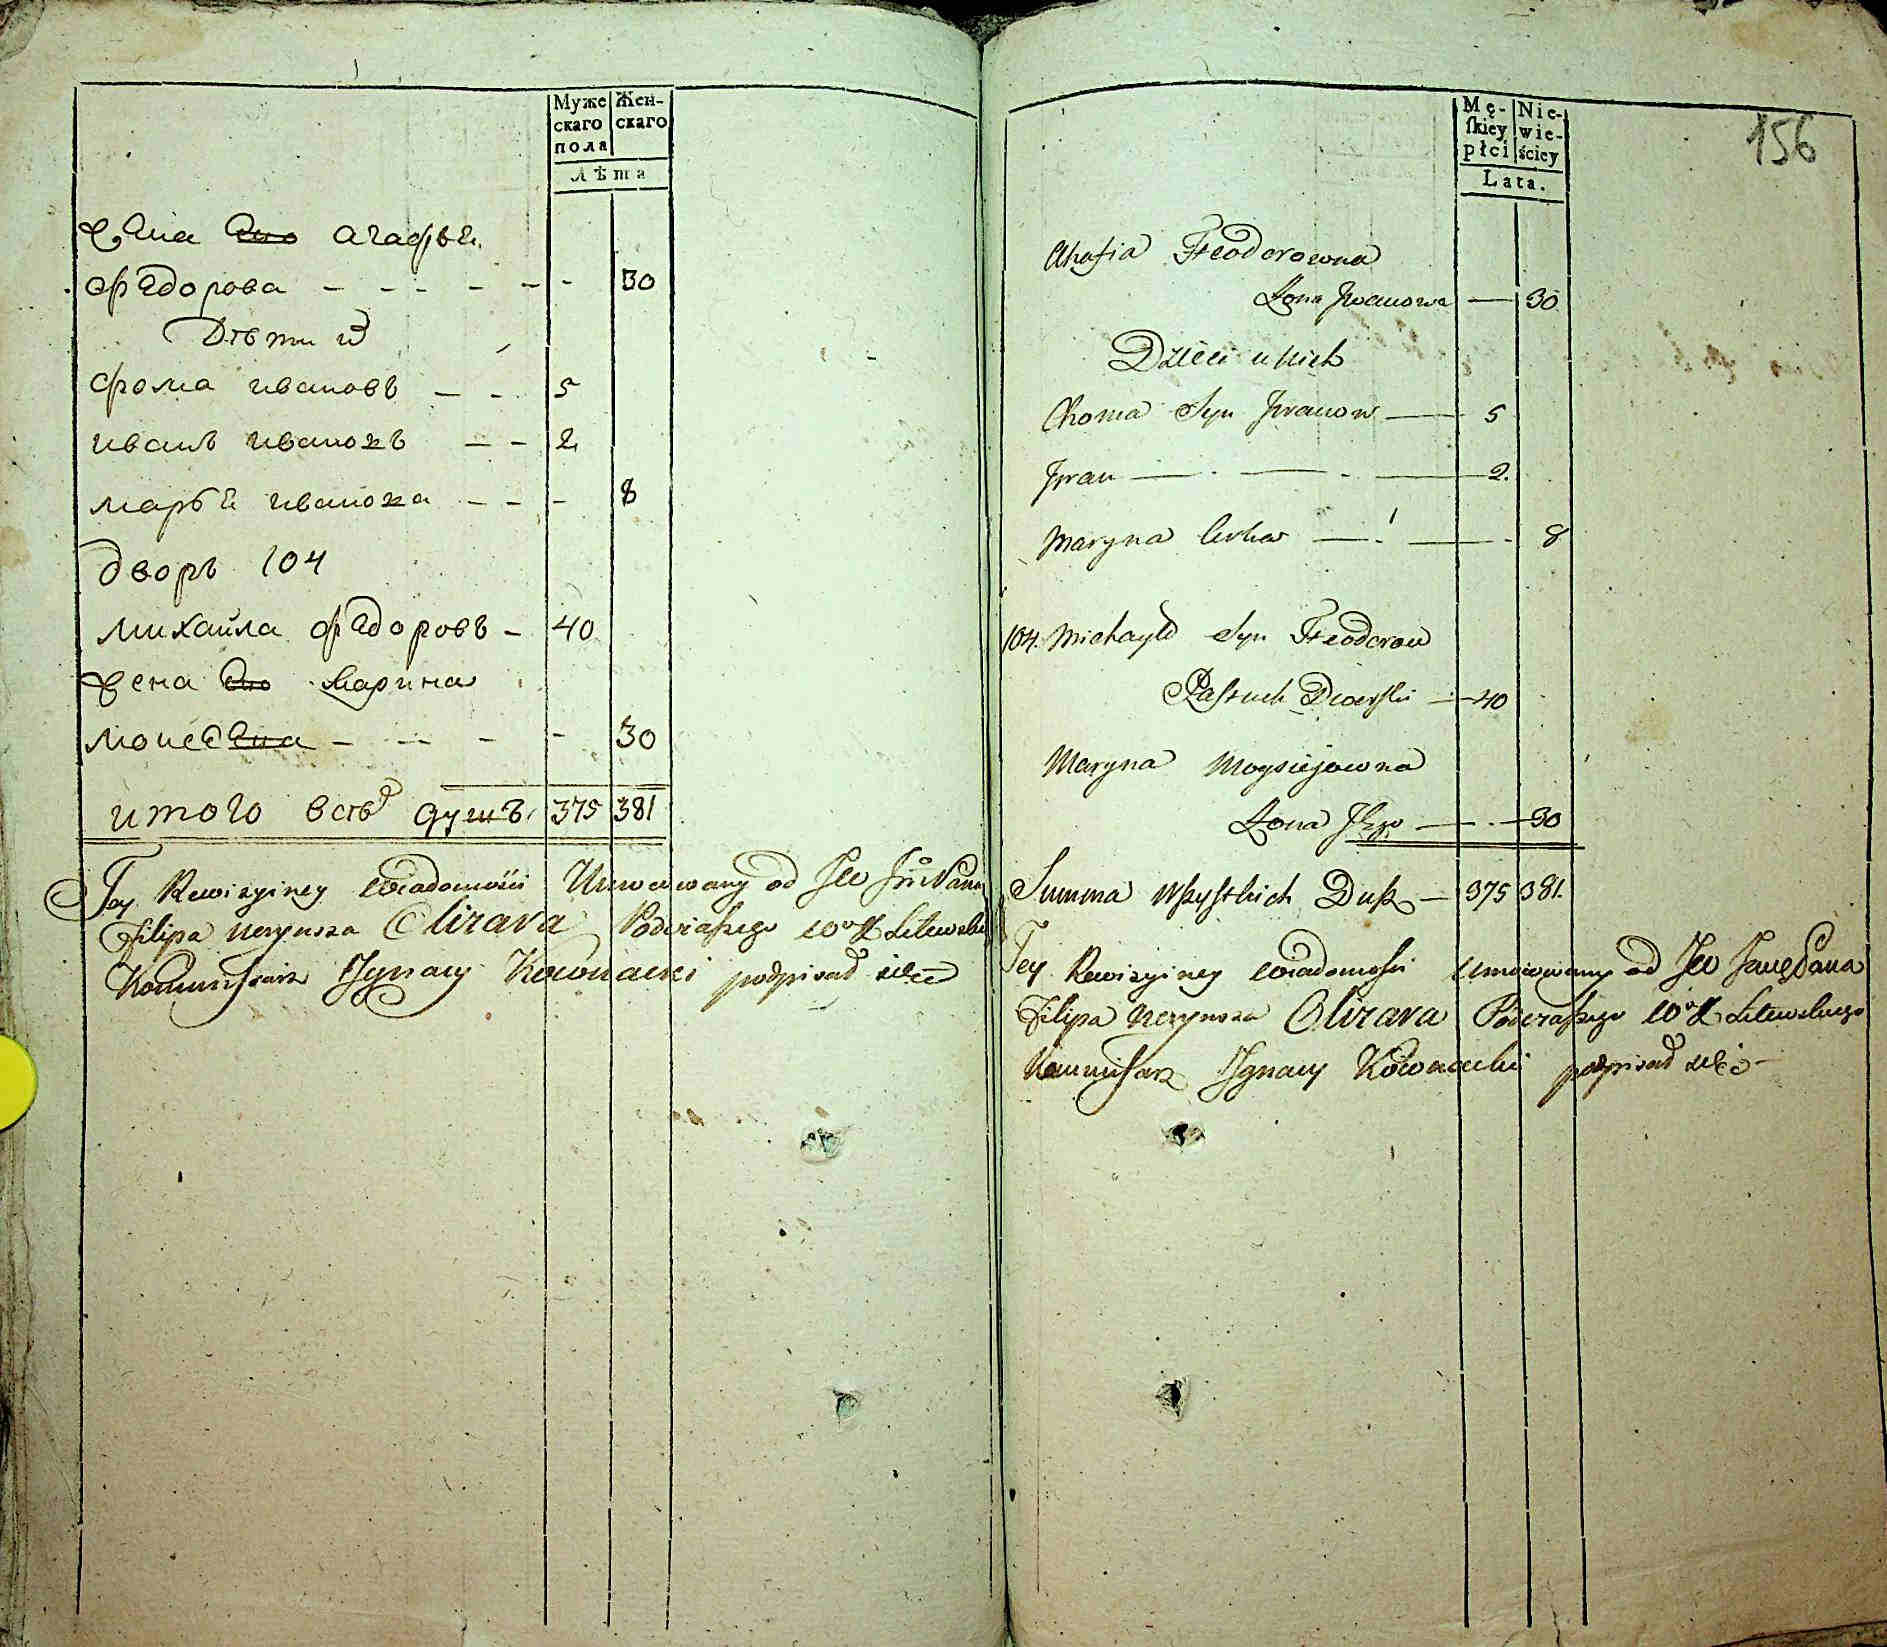 Муже
скаго
пола
Жен-
скаго
Лѣта
жена ево агафья
Федорова - - - - - - 30
Дѣти
фома ивановъ - - 5
иванъ ивановъ - - 2
марья иванова - - - 8
дворъ 104
михайла федоровъ - 40
жена ево Марина
- - - - 30
итого всѣхъ душъ 375 381
Tey Rewizyiney wiadomości Umocowany od JW
Filipa Neryusza Olizara Podczaszego Litewskie
Kommissarz Jgnacy Kownacki podpisał się
156
Mę-
skiey
płci
Nie-
wie-
ściey
Lata.
Ahafia Fteodorowna
Żona Jwanowa — 30
Dzieci u nich
Choma Syn Jwanow — 5
Jwan — 2.
Maryna Corka — 8
104. Michayło Syn Fteodorow
Pastuch Dworski — 40
Maryna Moysiejowna
Żona Jego — 30
Summa Wszystkich Dusz — 375 381.
Tey Rewizyiney wiadomości Umocowany od JW Jane Pana
Filipa Neryusza Olizara Podczaszego Litewskiego
Kommissarz Jgnacy Kownacki podpisał się